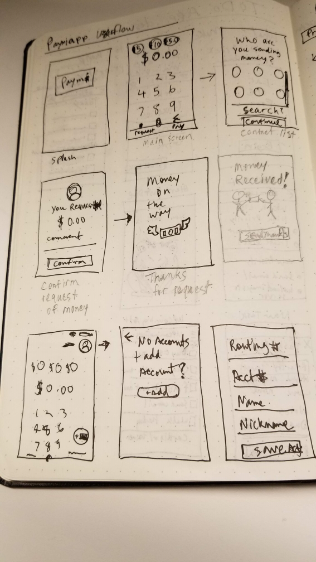 Paymapp
Payme
splash
5 10 50
$0.00
1 2 3
4 5 6
7 8 9
request Pay
main screen
Who are
you sending
money?
search!
Continue
contact list
You Request
$0.00
comment
Confirm
Confirm
request
of money
Money
on
the
way
Thanks
for request
Money
Received!
$0.00
1 2 3
4 5 6
7 8 9
← No Accounts
+ add
Account?
+add
Routing #
Acct #
Name
Nickname
save